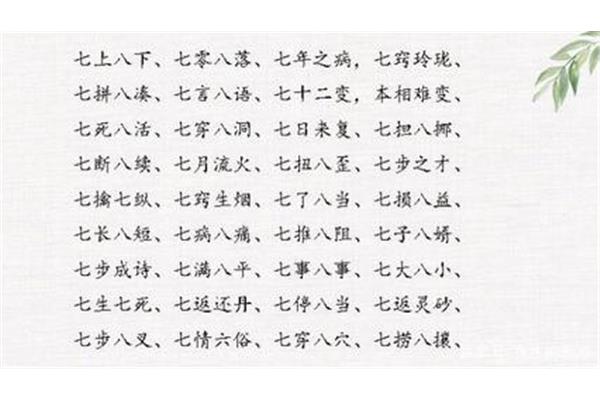 七上八下、七零八落、七年之病，七窍玲珑、
七拼八凑、七言八语、七十二变，本相难变、
七死八活、七穿八洞、七日来复、七担八挪、
七断八续、七月流火、七扭八歪、七步之才、
七擒七纵、七窍生烟、七了八当、七损八益、
七长八短、七病八痛、七推八阻、七子八婿、
七步成诗、七满八平、七事八事、七大八小、
七生七死、七返还丹、七停八当、七返灵砂、
七步八叉、七情六俗、七穿八穴、七捞八攘、